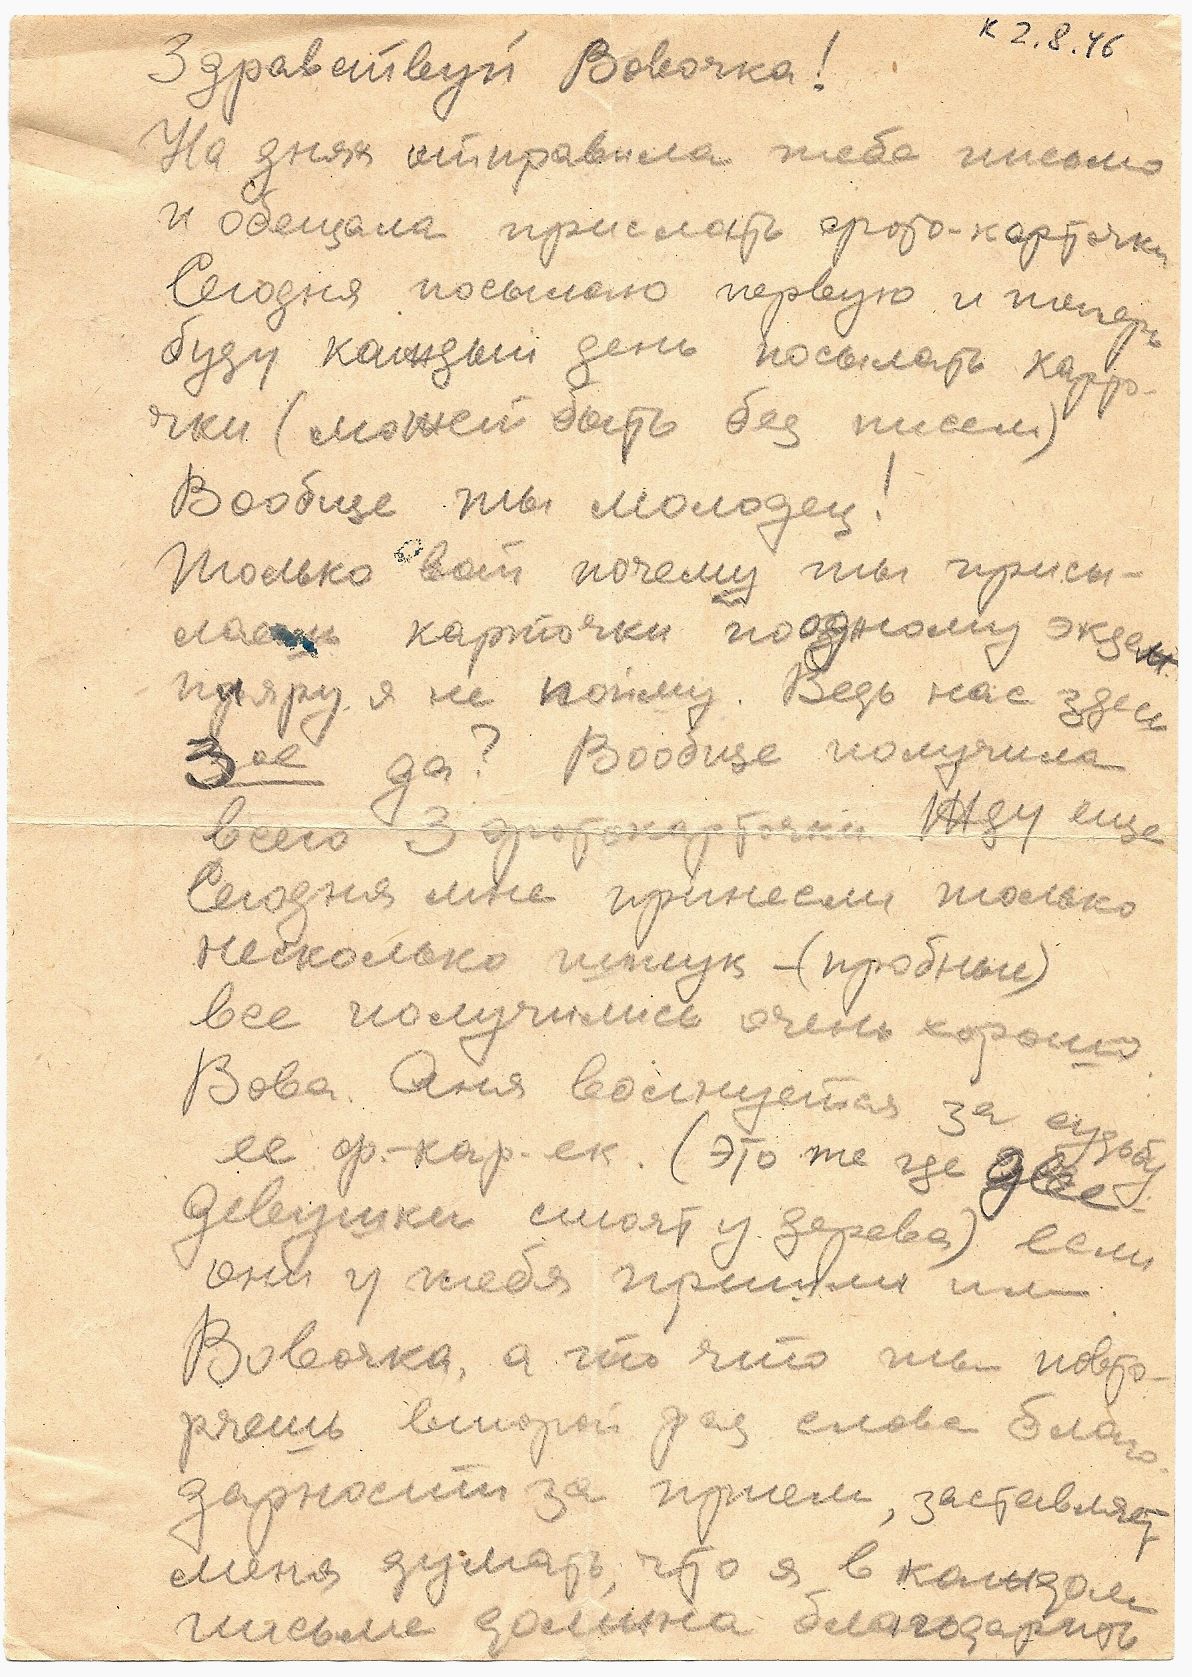 к 2.8.46
Здравствуй Вовочка!
На днях отправила тебе письмо
и обещала прислать фото-карточки
Сегодня посылаю первую и теперь
буду каждый день посылать карто-
чки (может быть без писем)
Вообще ты молодец!
Только вот почему ты присы-
лаешь карточки поодному экзем-
пляру я не пойму. Ведь нас здесь
3ое да? Вообще получила
всего 3 фотокарточки Жду еще
Сегодня мне принесли только
несколько штук - (пробные)
все получились очень хорошо.
Вова. Аня волнуется за судьбу
ее ф.-кар-ек. (это же где две
девушки стоят у дерева) если
они у тебя пришли им.
Вовочка, а то что ты повто-
ряешь второй раз слова благо-
дарности за прием, заставляет
меня думать, что я в каждом
письме должна благодарить